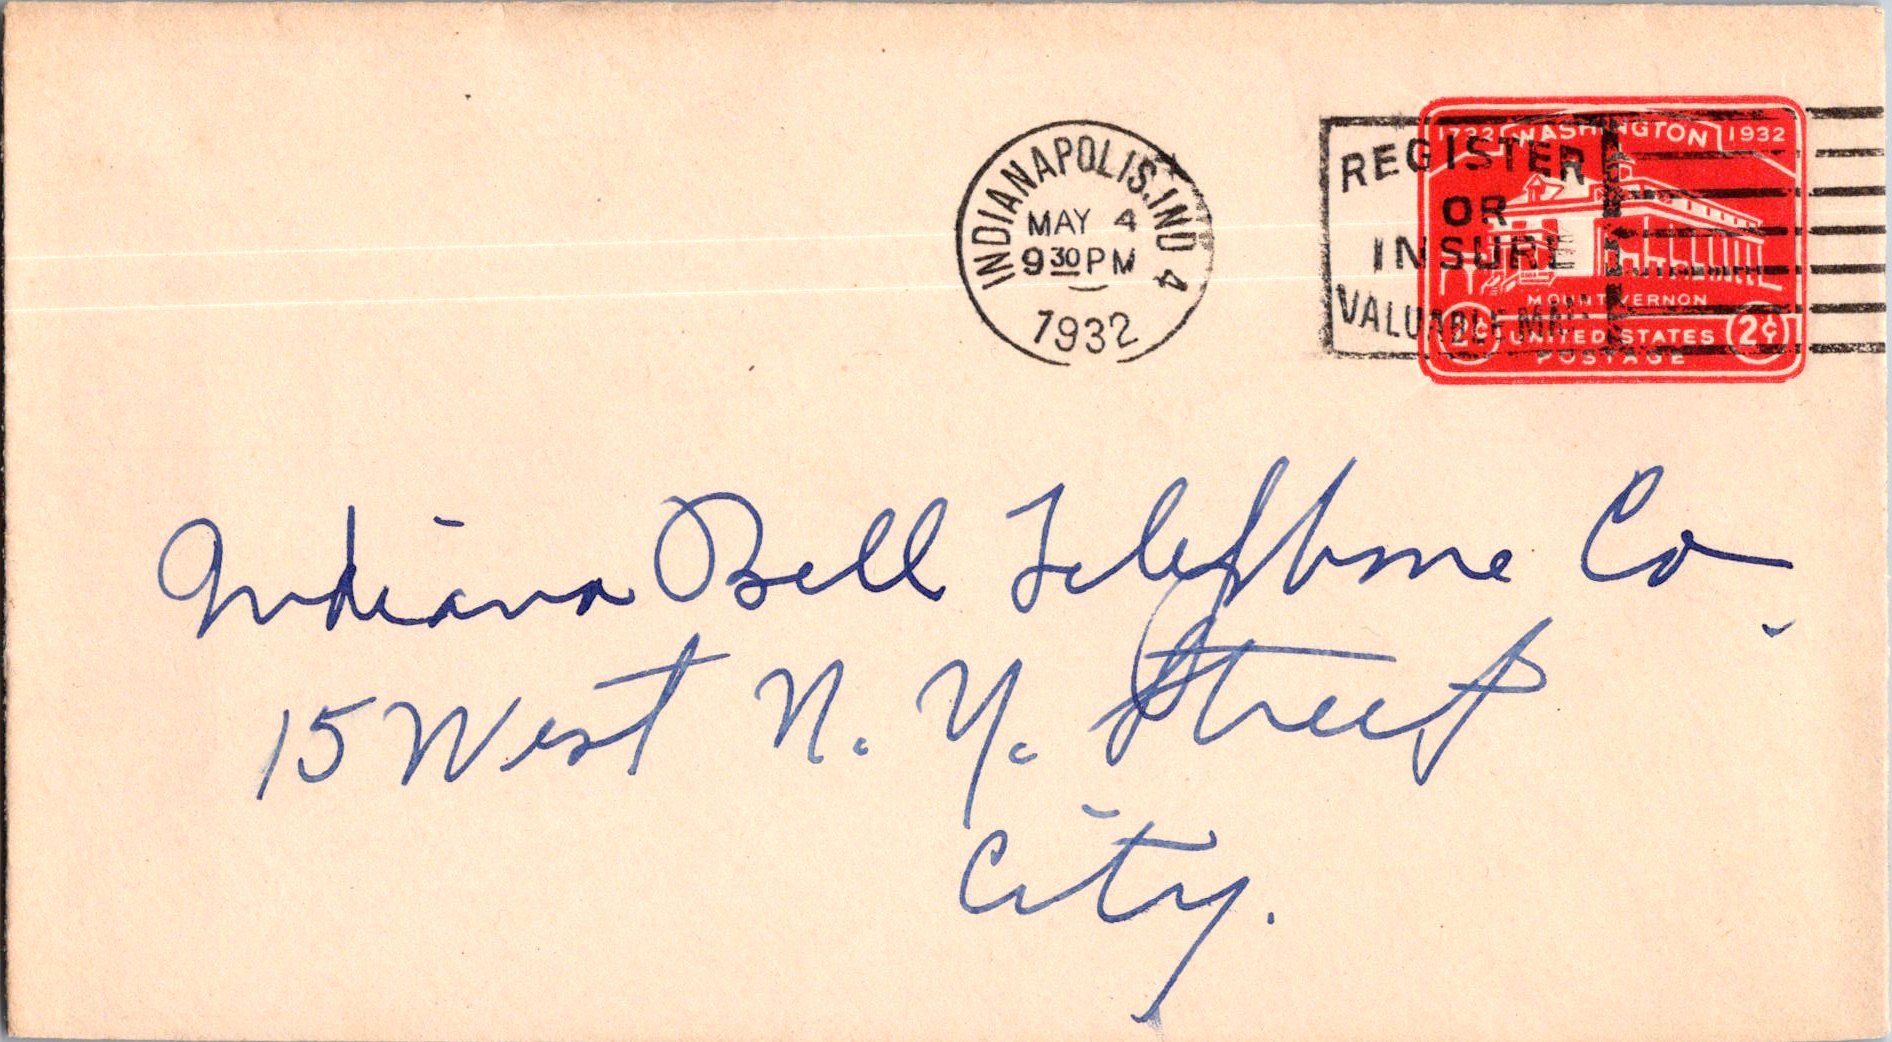 INDIANAPOLIS, IND. 4
MAY 4
9 30 PM
1932
REGISTER
OR
INSURE
VALUABLE MAIL
1732 WASHINGTON 1932
MOUNT VERNON
2¢ UNITED STATES 2¢
POSTAGE
Indiana Bell Telephone Co.
15 West N. Y. Street
City.